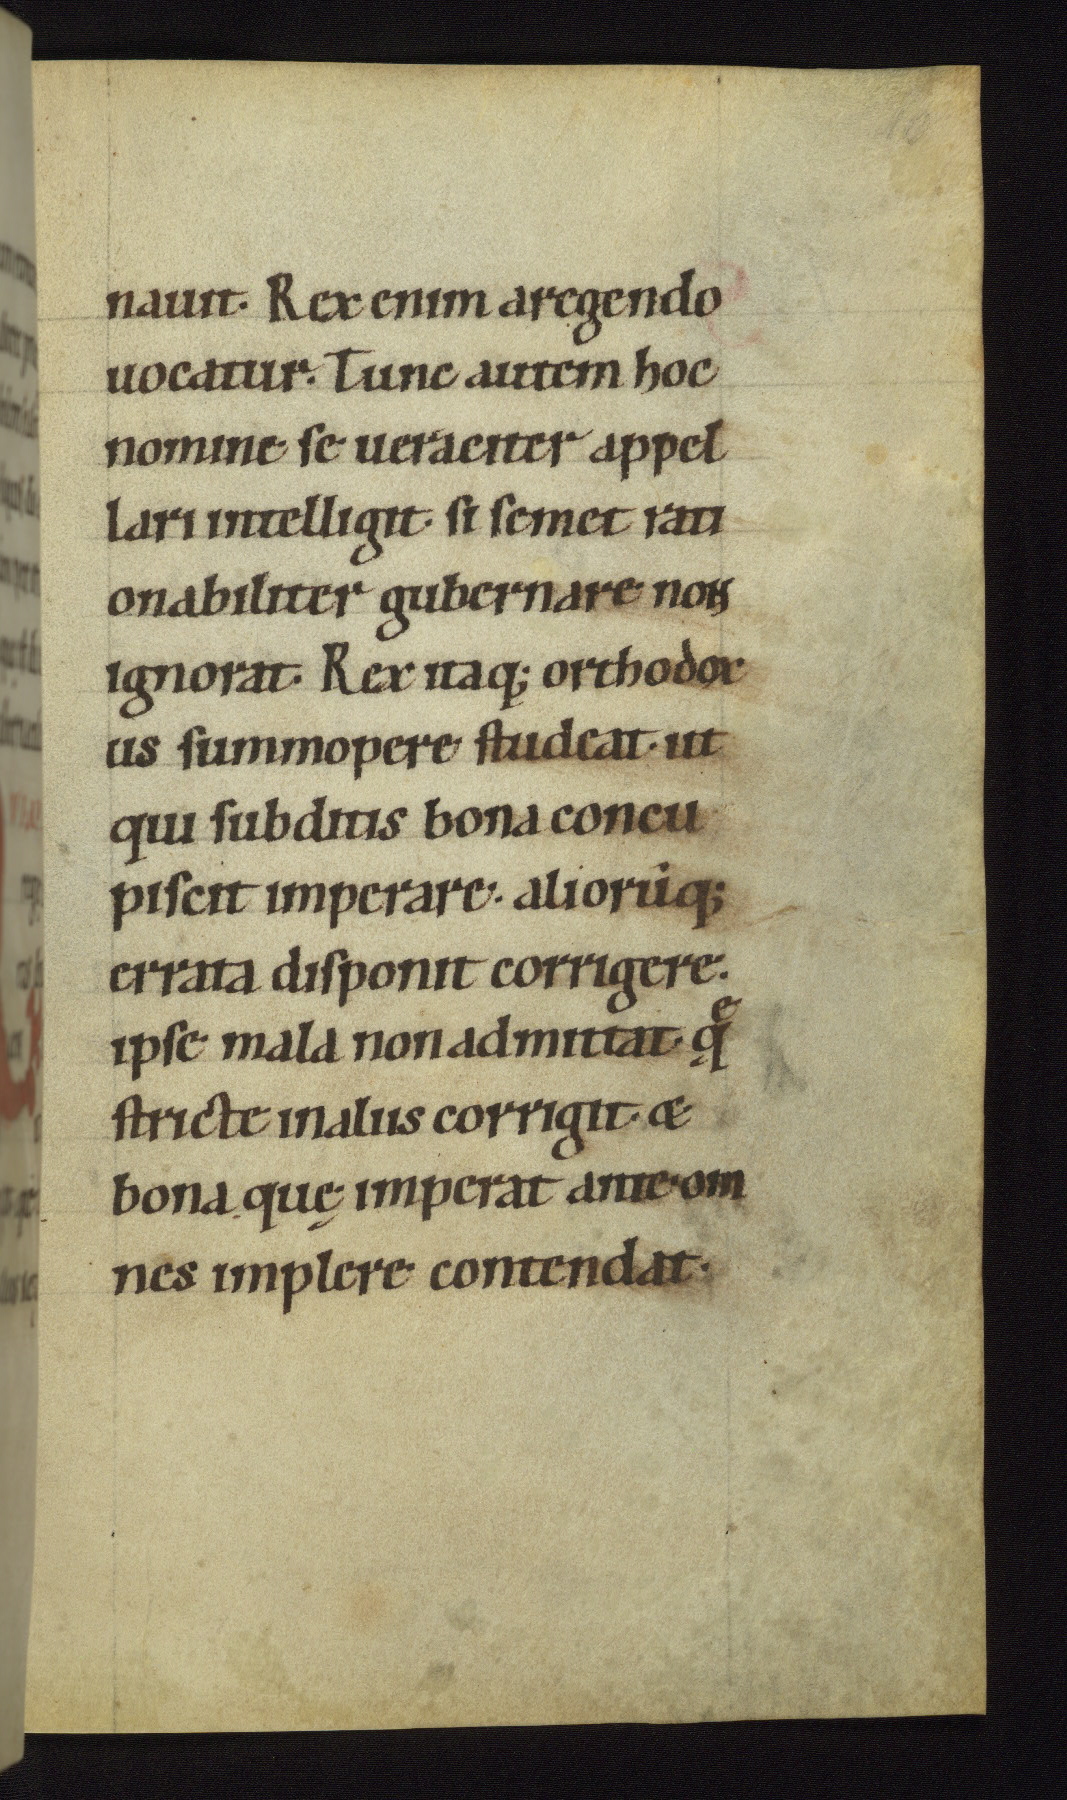 nauit. Rex enim aregendo
uocatur. Tunc autem hoc
nomine se ueraciter appel
lari intelligit. si semet rati
onabiliter gubernare non
ignorat. Rex itaq; orthodox
us summopere studeat. ut
qui subditis bona concu
piscit imperare. aliorūq;
errata disponit corrigere.
ipse mala non admittat. q̨ͤ
stricte inaliis corrigit. &
bona quę imperat ante om
nes implere contendat.